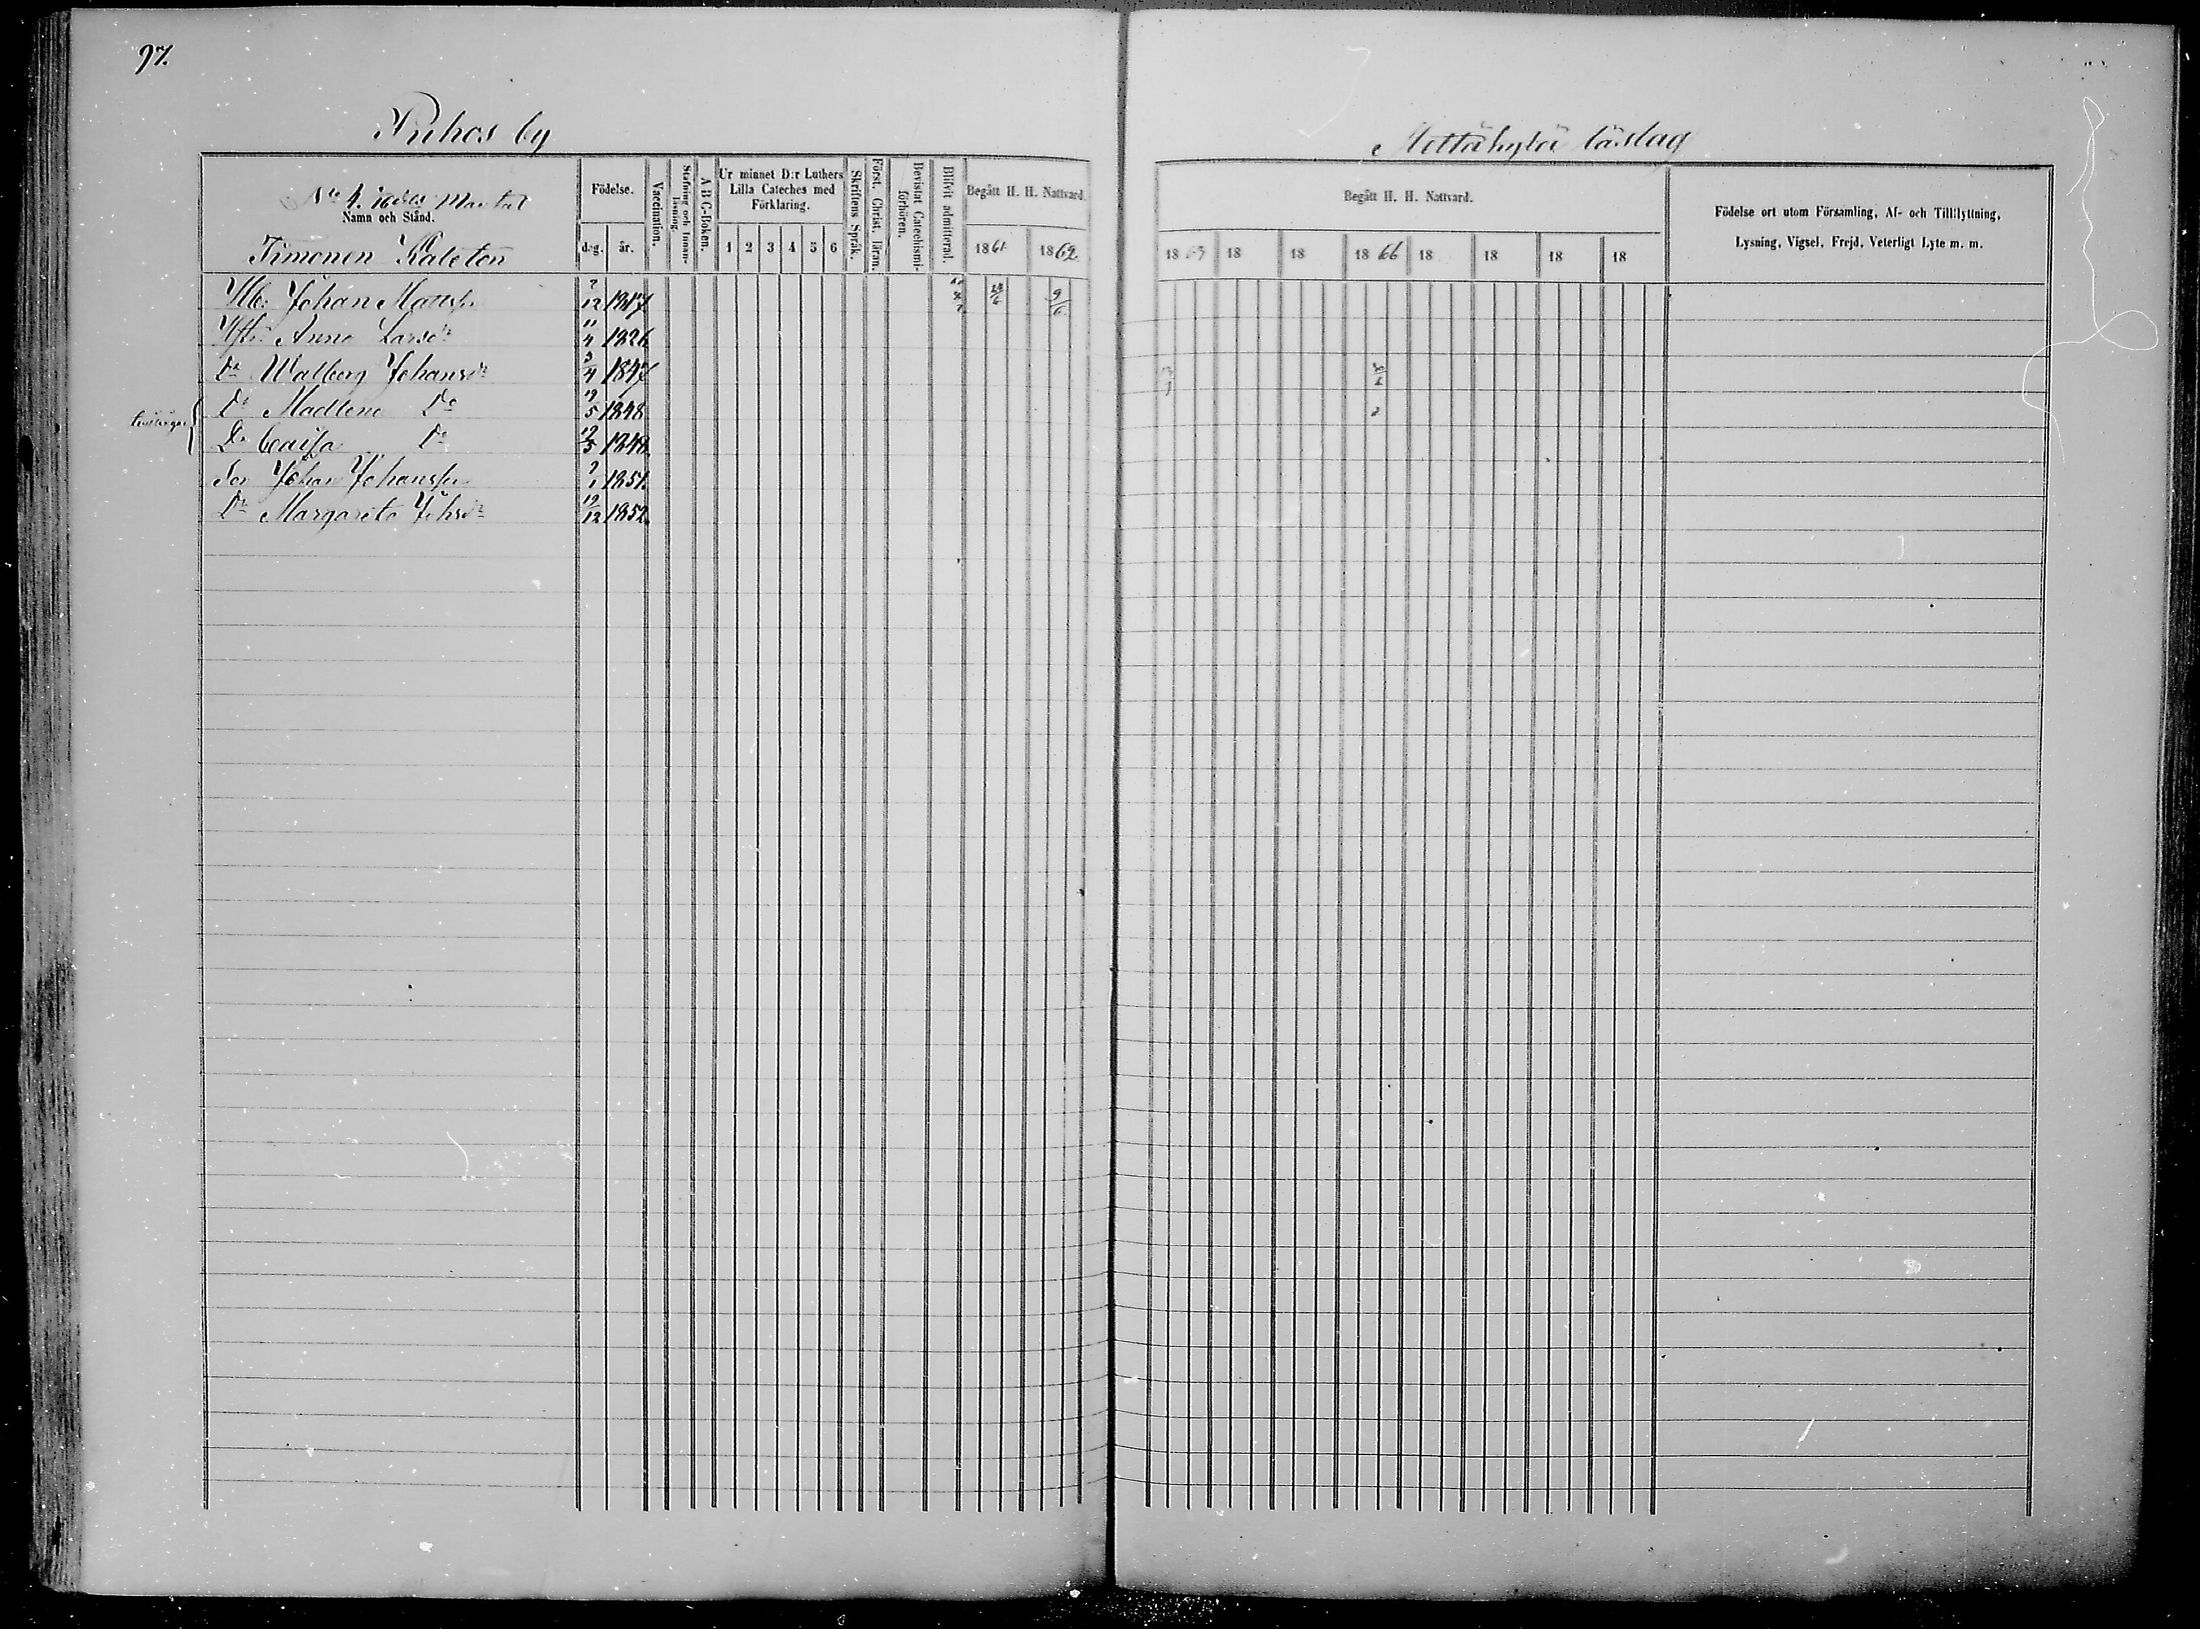 97.
Puhos by
No 4. Mantal
Namn och Stånd.
Timonen
Födelse.
dag. år.
Vaccination.
Stafning och Innan-läsning.
A B C-Boken.
Ur minnet D:r Luthers Lilla Cateches med Förklaring.
1 2 3 4 5 6
Skriftens Språk.
Först. Christ. läran.
Bevistat Catechismi-förhören.
Blifvit admitterad.
Begått H. H. Nattvard.
1861 1862
Johan Mattss. 12 1817 9/6
Anna Larsdr 11/4 1826
Dr Walborg Johansdr 3/4 1847
Dr Madlena Do 19/5 1848
Dr Caisa Do 19/5 1848
tvillingar
Son Johan Johansson 1851
Dr Margareta Johsdr 19/12 1852
läslag
Begått H. H. Nattvard.
1863 18 18 1866 18 18 18 18
Födelse ort utom Församling, Af- och Tillflyttning,
Lysning, Vigsel, Frejd, Veterligt Lyte m. m.